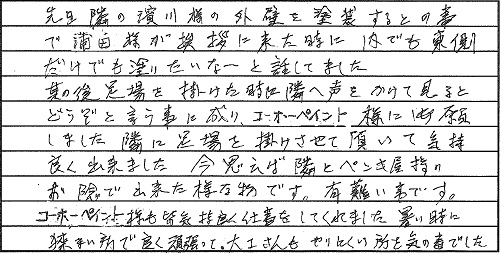 先日隣の濱川様の外壁を塗装するとの事
で蒲田様が挨拶に来た時に内でも東側
だけでも塗りたいなーと話してました
其の後足場を掛けた時に隣へ声をかけて見ると
どうぞと言う事に成り、コーホーペイント様に御願
しました隣に足場を掛けさせて頂いて気持
良く出来ました 今思えば隣とペンキ屋揩の
お険で出来た様な物です。有難い事です。
コーホーペイント様も皆気持良く仕事をしてくれました 暑い時に
狭い所で良く頑張って。大工さんもやりにくい所を気の毒でした